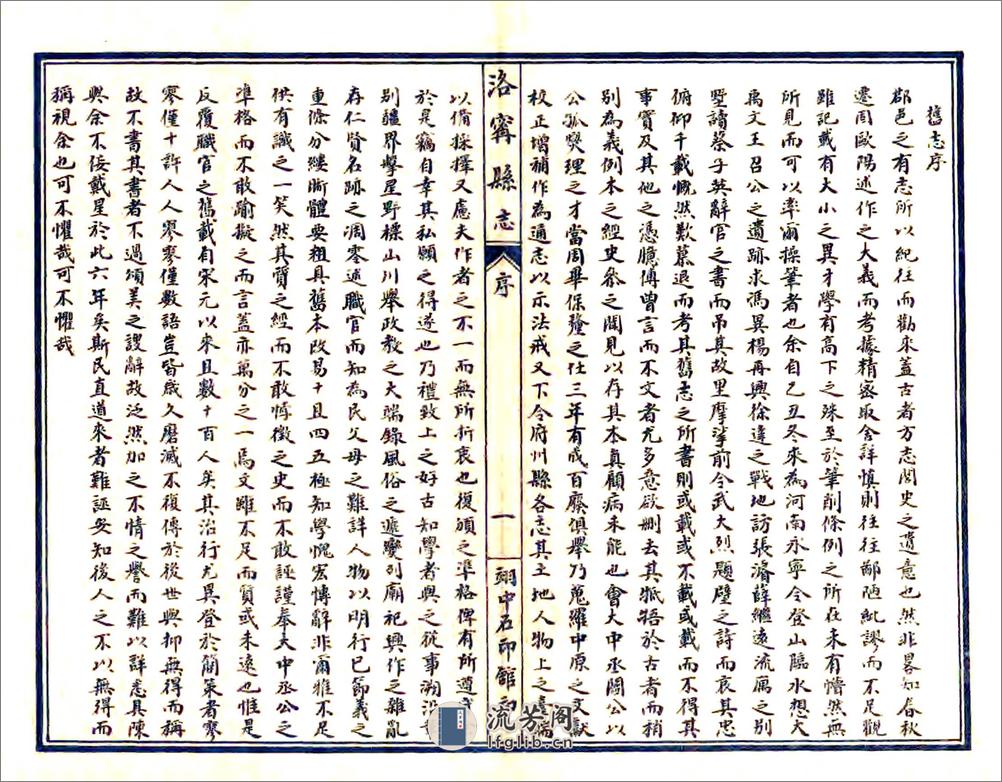 舊志序
郡邑之有志所以紀往而勸來蓋古者方志閭史之遺意也然非畧知春秋
遷固歐陽述作之大義而考據精密取舍詳慎則往往鄙陋紕謬而不足觀
雖記載有大小之異才學有高下之殊至於筆削條例之所在未有懵然無
所見而可以率爾操筆者也余自乙丑冬來為河南永寧令登山臨水想大
禹文王召公之遺跡求馮異楊再興徐達之戰地訪張濬薛繼遠流寓之別
墅讀蔡子英辭官之書而弔其故里摩挲前令武大烈題壁之詩而哀其忠
俯仰千載慨然歎慕退而考其舊志之所書則或載或不載或載而不得其
事實及其他之憑臆傅曾言而不文者尤多意欲刪去其牴牾於古者而稍
別為義例本之經史參之聞見以存其本真顧病未能也會大中丞閻公以
公孤燮理之才當周畢保釐之任三年有成百廢俱舉乃蒐羅中原之文獻
校正增補作為通志以示法戒又下令府州縣各志其土地人物上之
洛寧縣志
序
一
翊中石印館
以備採擇又慮夫作者之不一而無所折衷也復頒之準格俾有所遵
於是竊自幸其私願之得遂也乃禮致上之好古知學者與之從事溯沿
別疆界攀星野標山川舉政教之大端錄風俗之遞變列廟祀興作之雜亂
存仁賢名跡之凋零述職官而知為民父母之難詳人物以明行已節義之
重條分縷晰體要粗具舊本改易十且四五極知學愧宏博辭非爾雅不足
供有識之一笑然其質之經而不敢悖徵之史而不敢誣謹奉大中丞公之
準格而不敢踰擬之而言蓋亦萬分之一焉文雖不足而質或未遠也惟是
反覆職官之舊載自宋元以來且數十百人矣其治行尤異登於簡策者寥
寥僅十許人人寥寥僅數語豈皆歲久磨滅不復傳於後世與抑無得而稱
故不書其書者不過頌美之諛辭故泛然加之不情之譽而難以詳悉具陳
與余不佞戴星於此六年矣斯民直道來者難誣安知後人之不以無得而
稱視余也可不懼哉可不懼哉
流芳阁
lfglib.cn